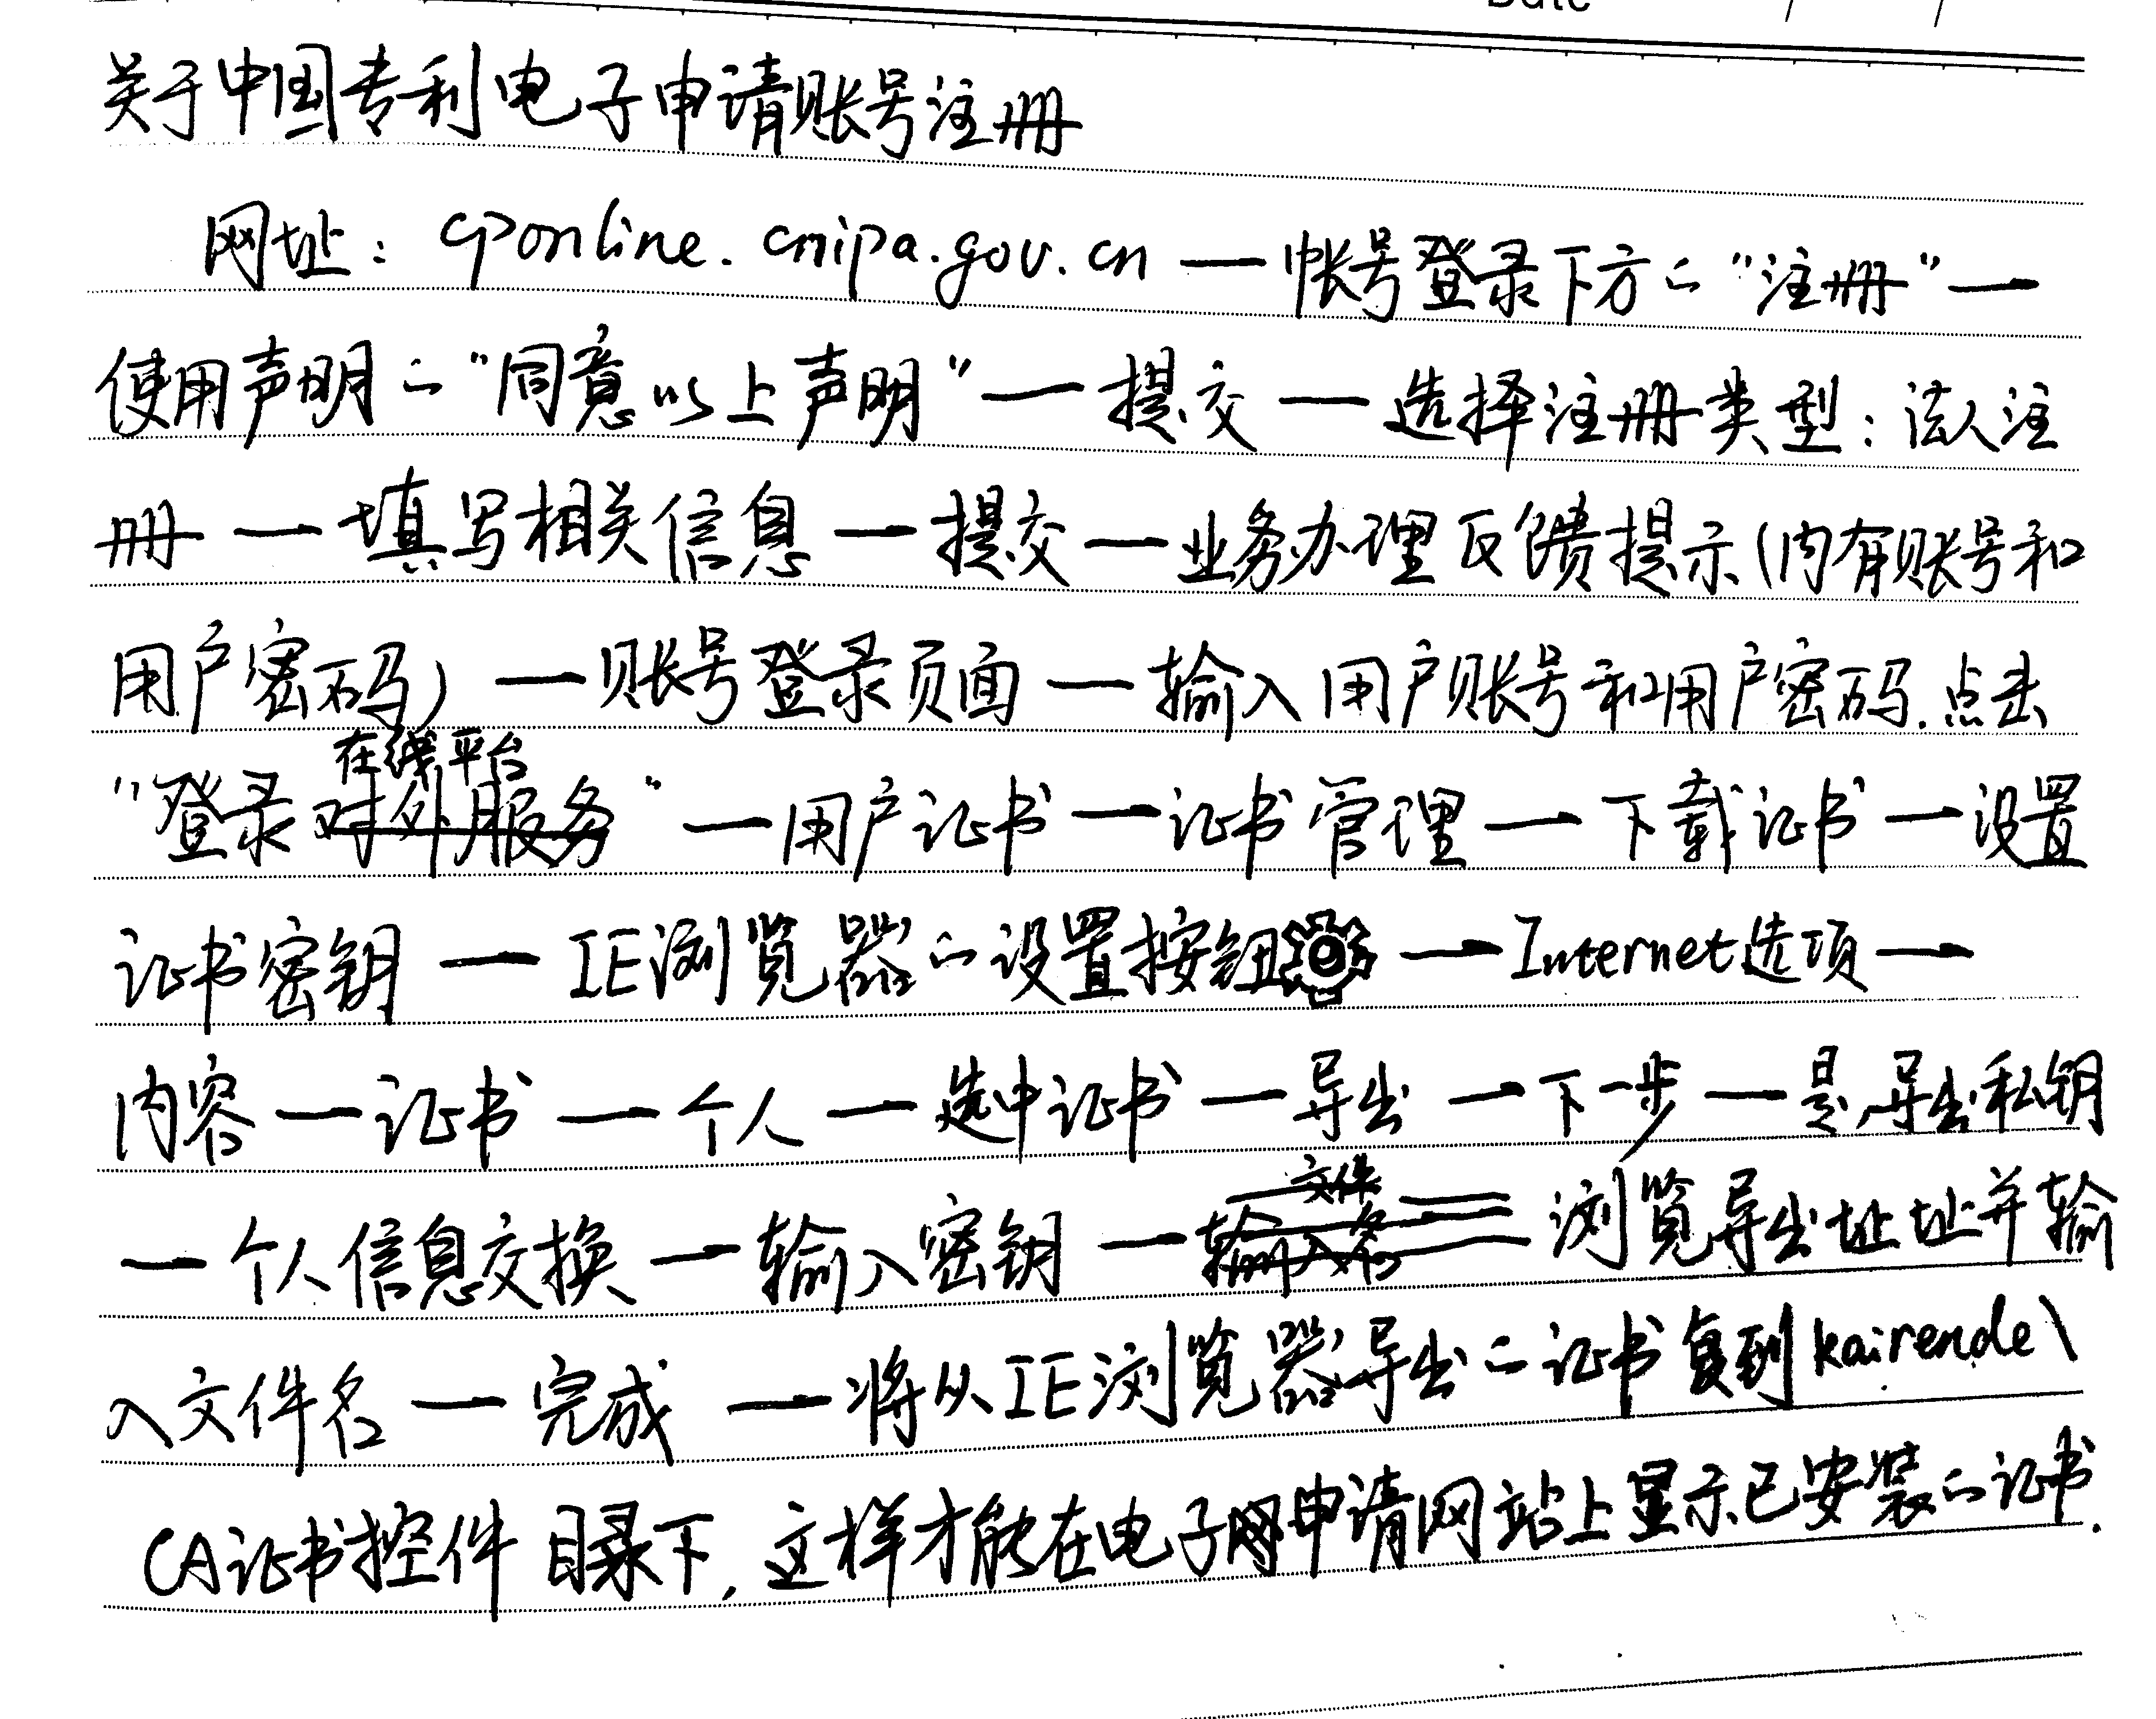 Date / /
关于中国专利电子申请账号注册
网址：cponline.cnipa.gov.cn — 帐号登录下方的"注册" —
使用声明的"同意以上声明" — 提交 — 选择注册类型：法人注
册 — 填写相关信息 — 提交 — 业务办理反馈提示(内有账号和
用户密码) — 账号登录页面 — 输入用户账号和用户密码.点击
在线平台
"登录对外服务" — 用户证书 — 证书管理 — 下载证书 — 设置
证书密钥 — IE浏览器的设置按钮 — Internet选项 —
内容 — 证书 — 个人 — 选中证书 — 导出 — 下一步 — 是,导出私钥
文件
— 个人信息交换 — 输入密钥 — 输入名 浏览导出址址并输
入文件名 — 完成 — 将从IE浏览器导出的证书复到kairende\
CA证书控件目录下,这样才能在电子申请网站上显示已安装的证书.